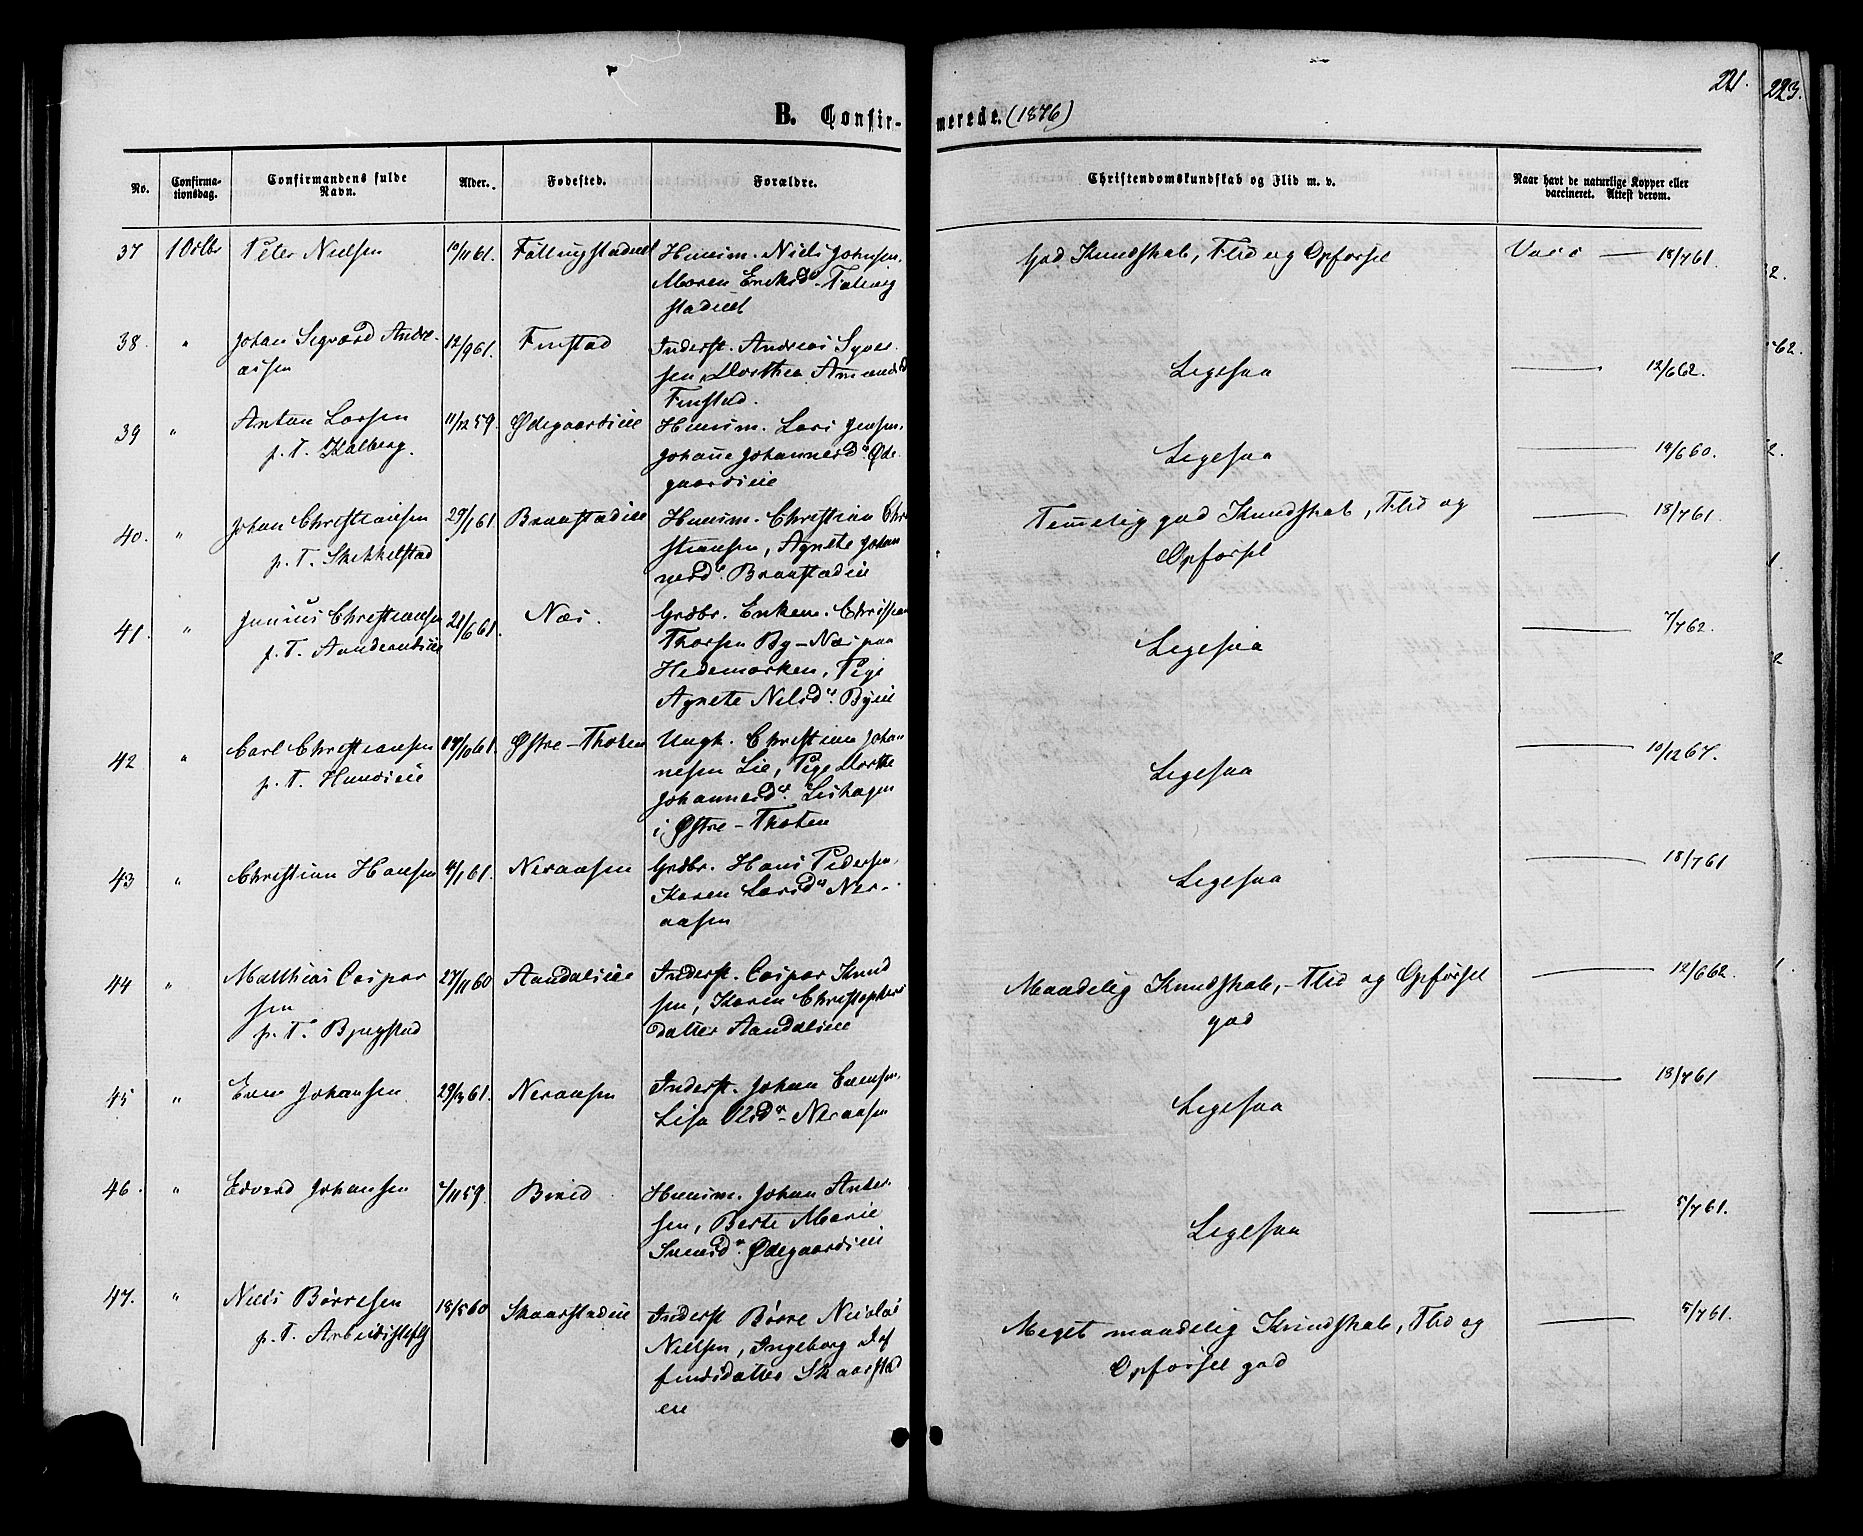 221.
223.
B. Confir-
merede. (1876)
No.
Confirma-
tionsdag.
Confirmandens fulde
Navn.
Alder.
Fødested.
Forældre.
Christendomskundskab og Flid m. v.
Naar havt de naturlige Kopper eller
vaccineret. Attest derom.
37 1 Octbr Peter Nielsen 10/11 61. Huusm. Niels Johnsen,
Maren Eriksd.
God Kundskab, Flid og Opførsel
Vacc — 18/7 61.
38. " Johan Sigvard Andre-
assen
12/9 61. Finstad Inderst. Andreas Syver
sen, Dorthea
Finstad.
Ligesaa
— 12/6 62.
39 " Anton Larsen
p. T. Kalberg.
11/12 59. Ødegaardseie Huusm. Lars Jensen,
Johanne Johannesd. Øde
gaardseie
Ligesaa
— 19/6 60.
40. " Johan Christiansen
p. T. Skikkelstad
29/1 61 Braastadeie Huusm. Christian Chri
stiansen, Agnete Johan
nesd. Braastadeie
Temmelig god Kundskab, Flid og
Opførsel
— 18/7 61.
41. " Junius Christiansen
p. T.
21/6 61. Næs. Grdbr. Enkem. Christian
Thorsen By - Næs paa
Hedemarken, Pige
Agnete Nilsd. Byeie
Ligesaa
— 7/7 62.
42 " Carl Christiansen
p. T. Hunseie
17/10 61. Østre-Thoten Ungk. Christian Johan
nesen Lie, Pige Dorthe
Johannesd. Lishagen
i Østre-Thoten
Ligesaa
— 10/12 67.
43 " Christian Hansen 4/1 61. Neraasen Grdbr. Hans Pedersen,
Karen Larsd. Ner-
aasen
Ligesaa
— 18/7 61
44 " Matthias Casper
sen
p. T. Bjugstad
27/11 60 Aandalseie Inderst. Casper Knud
sen, Karen Christophers
datter Aandalseie
Maadelig Kundskab, - Flid og Opførsel
god
— 12/6 62.
45 " Even Johansen 29/3 61. Neraasen Inderst. Johan Evensen,
Lisa Olsd. Neraasen
Ligesaa
— 18/7 61
46. " Edvard Johansen 7/11 59. Birid Huusm. Johan Ander
sen, Berte Marie
Ødegaardseie
Ligesaa
— 5/7 61.
47. " Niels Børresen
p. T.
18/5 60 Skaarstadeie Inderst Børre Nicolai
Nielsen, Ingeborg Dof
finsdatter Skaarstad
eie
Meget maadelig Kundskab, Flid og
Opførsel god
— 5/7 61.